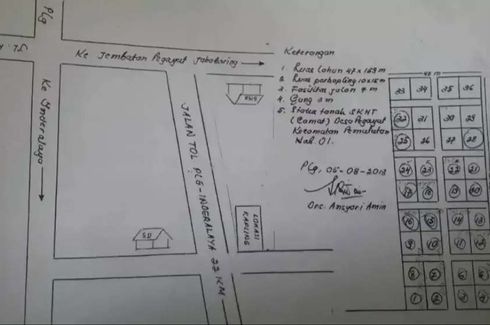 Plg
Ke Jembatan Pegayut Jakabaring
Ke Inderalaya
JALAN TOL PLG-INDERALAYA 22 KM
SD
LOKASI
KAPLING
Keterangan
1. Luas lahan 47 x 159 m
2. Luas perkapling 10x15 m
3. Fasilitas jalan 4 m
4. Gang 3 m
5. Status tanah SKHT
(Camat) Desa Pegayut
Kecamatan Pemulutan
Kab. OI.
Plg, 05-08-2018
Drs. Ansyori Amin
33 34 35 36
32 31 30 29
25 26 27 28
24 23 22 21
17 18 19 20
16 15 14 13
9 10 11 12
8
1 2 3 4